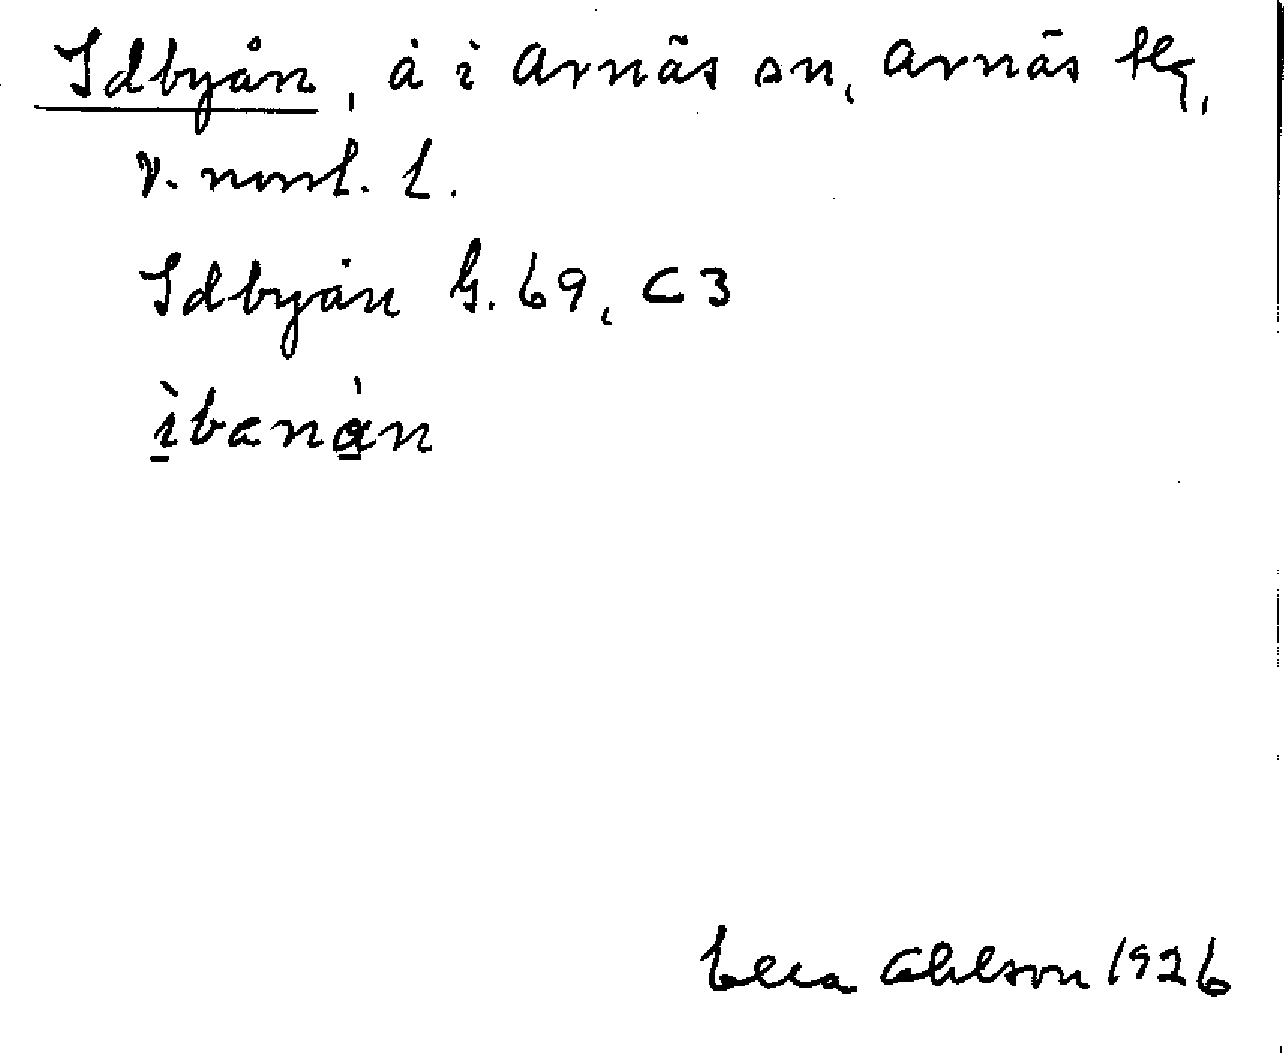 Idbyån, å i Arnäs sn, Arnäs tg,
V. norrl. l.
Idbyån G. 69, C3
ìbanån
Ohlson 1926